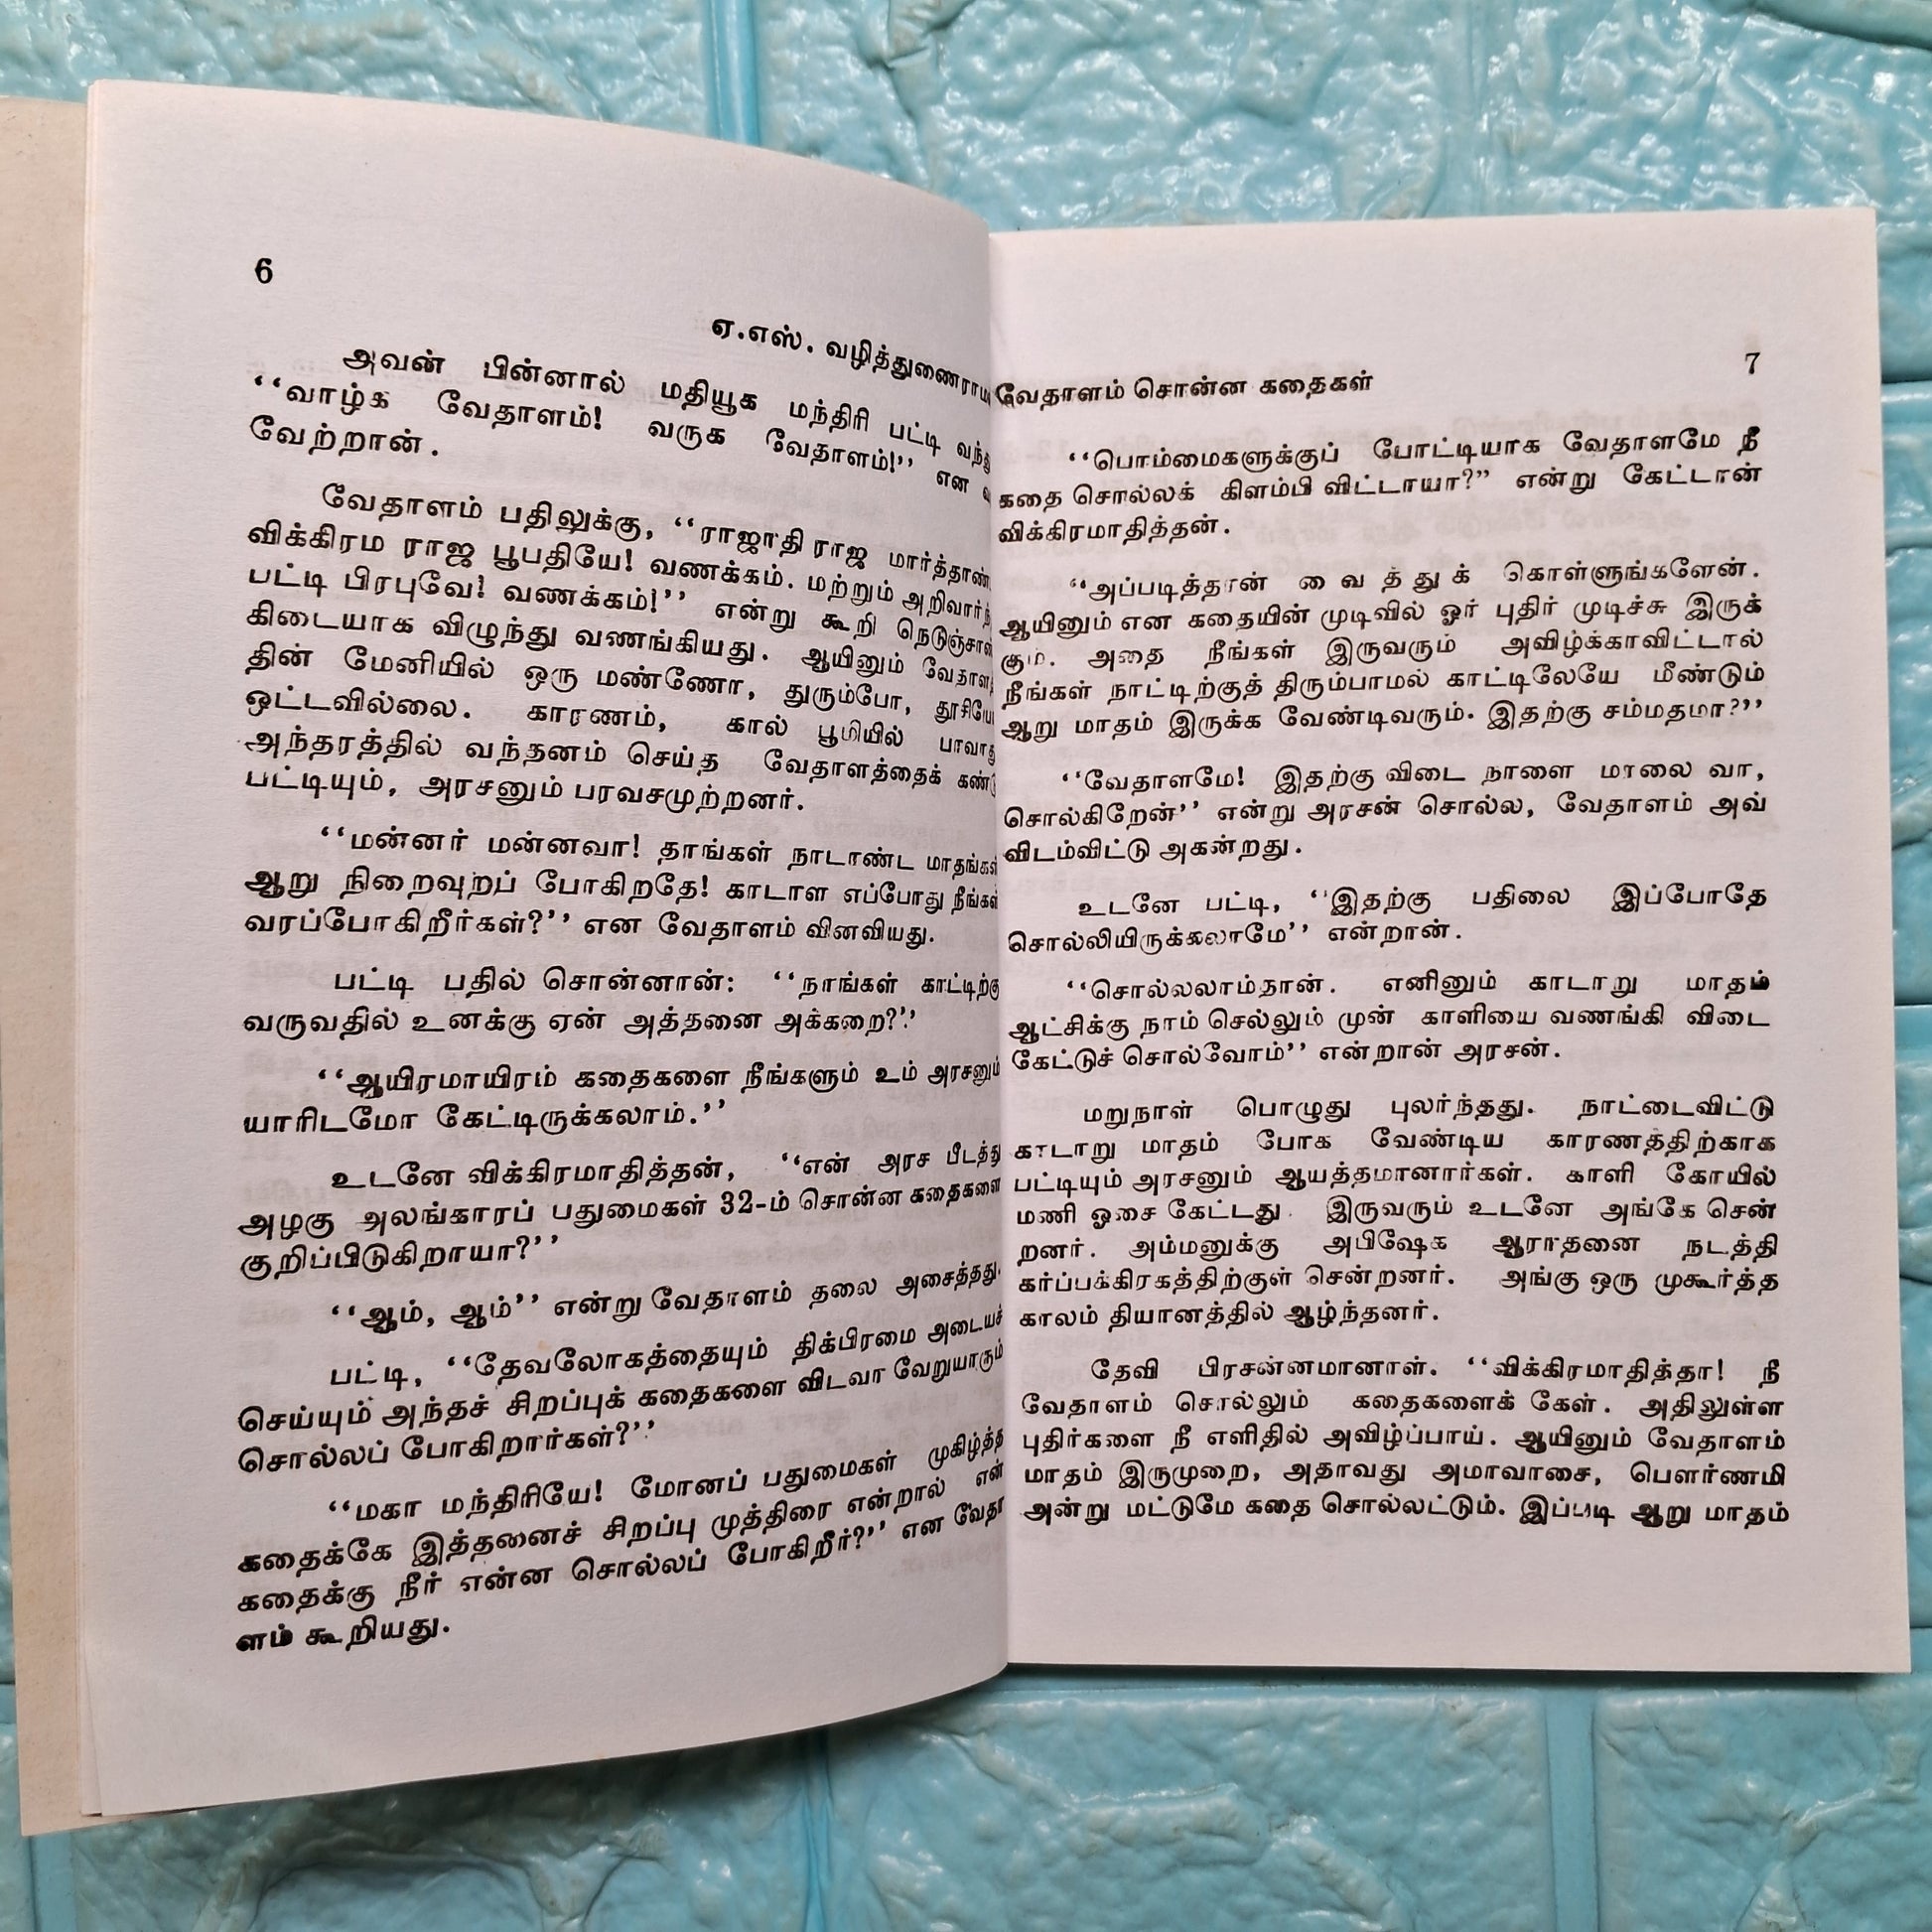 6
ஏ.எஸ். வழித்துணைராம
அவன் பின்னால் மதியூக மந்திரி பட்டி வந்து
‘‘வாழ்க வேதாளம்! வருக வேதாளம்!’’ என வ
வேற்றான்.
வேதாளம் பதிலுக்கு, ‘‘ராஜாதி ராஜ மார்த்தாண்ட
விக்கிரம ராஜ பூபதியே! வணக்கம். மற்றும் அறிவார்ந்
பட்டி பிரபுவே! வணக்கம்!’’ என்று கூறி நெடுஞ்சாண்
கிடையாக விழுந்து வணங்கியது. ஆயினும் வேதாளத்
தின் மேனியில் ஒரு மண்ணோ, துரும்போ, தூசியோ
ஒட்டவில்லை. காரணம், கால் பூமியில் பாவாது
அந்தரத்தில் வந்தனம் செய்த வேதாளத்தைக் கண்டு
பட்டியும், அரசனும் பரவசமுற்றனர்.
‘‘மன்னர் மன்னவா! தாங்கள் நாடாண்ட மாதங்கள்
ஆறு நிறைவுறப் போகிறதே! காடாள எப்போது நீங்கள்
வரப்போகிறீர்கள்?’’ என வேதாளம் வினவியது.
பட்டி பதில் சொன்னான்: ‘‘நாங்கள் காட்டிற்கு
வருவதில் உனக்கு ஏன் அத்தனை அக்கறை?’’
‘‘ஆயிரமாயிரம் கதைகளை நீங்களும் உம் அரசனும்
யாரிடமோ கேட்டிருக்கலாம்.’’
உடனே விக்கிரமாதித்தன், ‘‘என் அரச பீடத்து
அழகு அலங்காரப் பதுமைகள் 32-ம் சொன்ன கதைகளை
குறிப்பிடுகிறாயா?’’
‘‘ஆம், ஆம்’’ என்று வேதாளம் தலை அசைத்தது.
பட்டி, ‘‘தேவலோகத்தையும் திக்பிரமை அடையச்
செய்யும் அந்தச் சிறப்புக் கதைகளை விடவா வேறுயாரும்
சொல்லப் போகிறார்கள்?’’
‘‘மகா மந்திரியே! மோனப் பதுமைகள் முகிழ்த்த
கதைக்கே இத்தனைச் சிறப்பு முத்திரை என்றால் என்
கதைக்கு நீர் என்ன சொல்லப் போகிறீர்?’’ என வேதா
ளம் கூறியது.
7
வேதாளம் சொன்ன கதைகள்
‘‘பொம்மைகளுக்குப் போட்டியாக வேதாளமே நீ
கதை சொல்லக் கிளம்பி விட்டாயா?’’ என்று கேட்டான்
விக்கிரமாதித்தன்.
‘‘அப்படித்தான் வைத்துக் கொள்ளுங்களேன்.
ஆயினும் என கதையின் முடிவில் ஓர் புதிர் முடிச்சு இருக்
கும். அதை நீங்கள் இருவரும் அவிழ்க்காவிட்டால்
நீங்கள் நாட்டிற்குத் திரும்பாமல் காட்டிலேயே மீண்டும்
ஆறு மாதம் இருக்க வேண்டிவரும். இதற்கு சம்மதமா?’’
‘‘வேதாளமே! இதற்கு விடை நாளை மாலை வா,
சொல்கிறேன்’’ என்று அரசன் சொல்ல, வேதாளம் அவ்
விடம்விட்டு அகன்றது.
உடனே பட்டி, ‘‘இதற்கு பதிலை இப்போதே
சொல்லியிருக்கலாமே’’ என்றான்.
‘‘சொல்லலாம்தான். எனினும் காடாறு மாதம்
ஆட்சிக்கு நாம் செல்லும் முன் காளியை வணங்கி விடை
கேட்டுச் சொல்வோம்’’ என்றான் அரசன்.
மறுநாள் பொழுது புலர்ந்தது. நாட்டைவிட்டு
காடாறு மாதம் போக வேண்டிய காரணத்திற்காக
பட்டியும் அரசனும் ஆயத்தமானார்கள். காளி கோயில்
மணி ஓசை கேட்டது. இருவரும் உடனே அங்கே சென்
றனர். அம்மனுக்கு அபிஷேக ஆராதனை நடத்தி
கர்ப்பக்கிரகத்திற்குள் சென்றனர். அங்கு ஒரு முகூர்த்த
காலம் தியானத்தில் ஆழ்ந்தனர்.
தேவி பிரசன்னமானாள். ‘‘விக்கிரமாதித்தா! நீ
வேதாளம் சொல்லும் கதைகளைக் கேள். அதிலுள்ள
புதிர்களை நீ எளிதில் அவிழ்ப்பாய். ஆயினும் வேதாளம்
மாதம் இருமுறை, அதாவது அமாவாசை, பௌர்ணமி
அன்று மட்டுமே கதை சொல்லட்டும். இப்படி ஆறு மாதம்